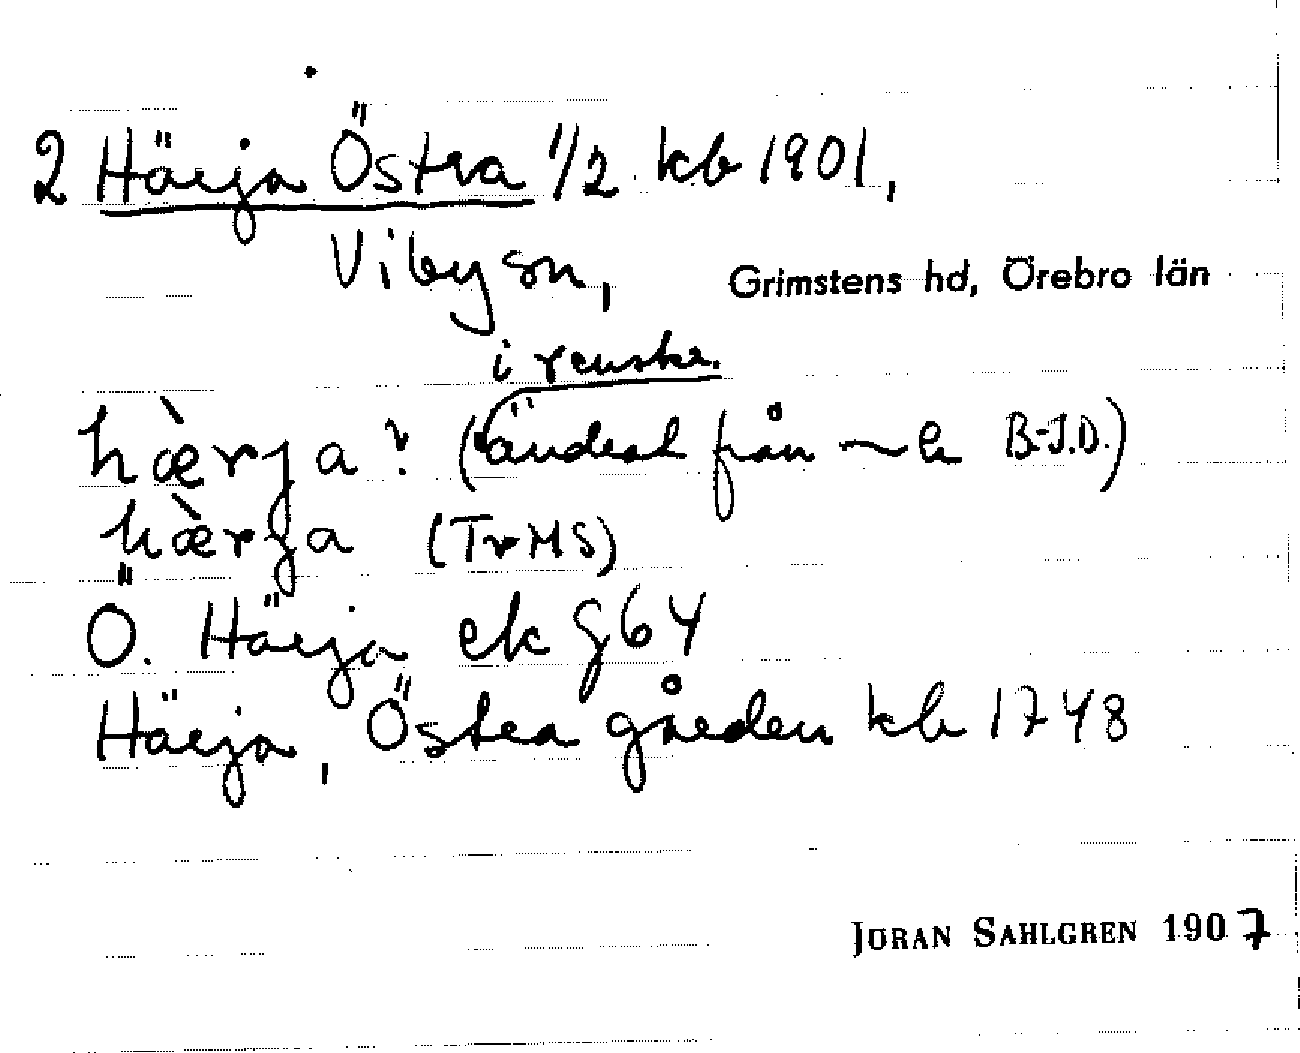 2 Härja Östra 1/2 kb 1901,
Viby sn, Grimstens hd, Örebro län
i renskr.
hæ̀rja? (ändrat från ~a B-J.D.)
hæ̀rja (TrMS)
Ö. Härja ek g64
Härja, Östra gården kb 1748
JÖRAN SAHLGREN 1907